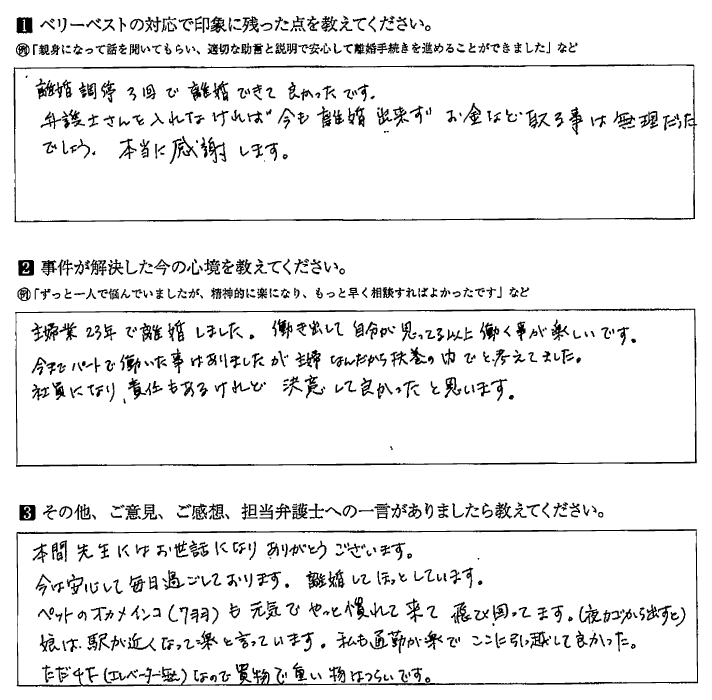 1 ベリーベストの対応で印象に残った点を教えてください。
例「親身になって話を聞いてもらい、適切な助言と説明で安心して離婚手続きを進めることができました」など
離婚調停3回で離婚できて良かったです。
弁護士さんを入れなければ今も離婚出来ず お金など取る事は無理だった
でしょう。 本当に感謝します。
2 事件が解決した今の心境を教えてください。
例「ずっと一人で悩んでいましたが、精神的に楽になり、もっと早く相談すればよかったです」など
主婦業23年で離婚しました。 働き出して自分が思ってる以上働く事が楽しいです。
今までパートで働いた事はありましたが主婦なんだから扶養の内でと考えてました。
社員になり、責任もあるけれど 決意して良かったと思います。
3 その他、ご意見、ご感想、担当弁護士への一言がありましたら教えてください。
本間先生にはお世話になりありがとうございます。
今は安心して毎日過ごしております。 離婚してほっとしています。
ペットのオカメインコ(7羽)も元気でやっと慣れて来て飛び回ってます。(夜カゴから出すと)
娘は駅が近くなって楽と言っています。私も通勤が楽でここに引っ越して良かった。
ただ4F(エレベーター無)なので買物で重い物はつらいです。